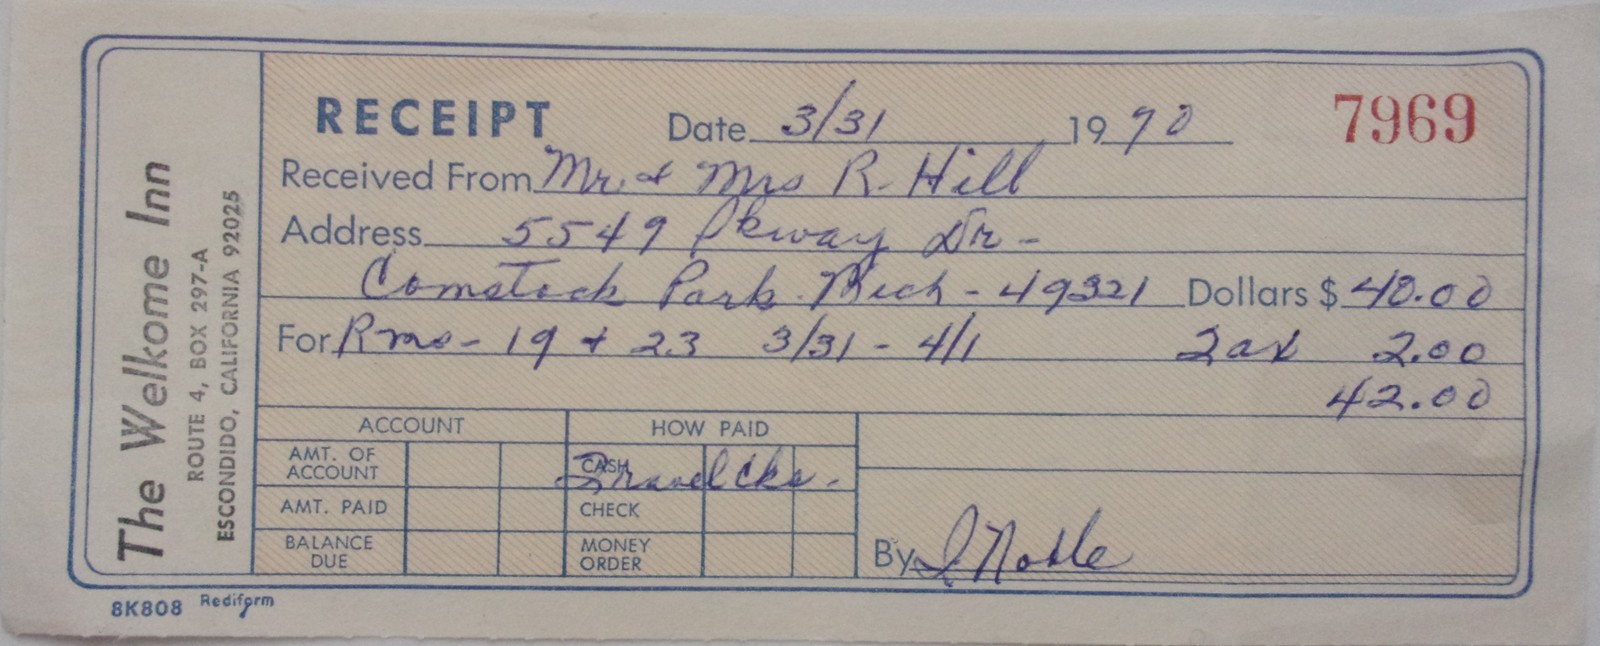 The Welkome Inn
ROUTE 4, BOX 297-A
ESCONDIDO, CALIFORNIA 92025
RECEIPT Date 3/31 1990 7969
Received From Mr. & Mrs R. Hill
Address 5549 Pkway Dr-
Comstock Park Mich - 49321 Dollars $ 40.00
For Rms - 19 & 23 3/31 - 4/1 Tax 2.00
42.00
ACCOUNT HOW PAID
AMT. OF ACCOUNT CASH Travel Cks.
AMT. PAID CHECK
BALANCE DUE MONEY ORDER
By I Noble
8K808 Rediform